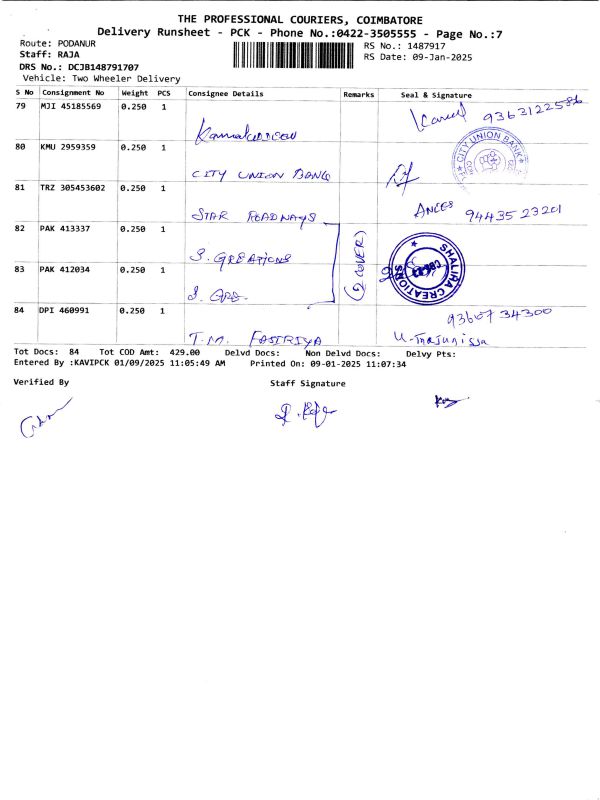 THE PROFESSIONAL COURIERS, COIMBATORE
Delivery Runsheet - PCK - Phone No.:0422-3505555 - Page No.:7
Route: PODANUR
RS No.: 1487917
Staff: RAJA
RS Date: 09-Jan-2025
DRS No.: DCJB148791707
Vehicle: Two Wheeler Delivery
S No Consignment No Weight PCS Consignee Details Remarks Seal & Signature
79 MJI 45185569 0.250 1
9363122586
80 KMU 2959359 0.250 1
CITY UNION BANK
CITY UNION BANK
81 TRZ 305453602 0.250 1
STAR ROADWAYS
9443523201
82 PAK 413337 0.250 1
S. CREATIONS
(2 COVER)
SHALIHA CREATIONS
83 PAK 412034 0.250 1
84 DPI 460991 0.250 1
T.M.
9360734300
Tot Docs: 84 Tot COD Amt: 429.00 Delvd Docs: Non Delvd Docs: Delvy Pts:
Entered By :KAVIPCK 01/09/2025 11:05:49 AM Printed On: 09-01-2025 11:07:34
Verified By Staff Signature